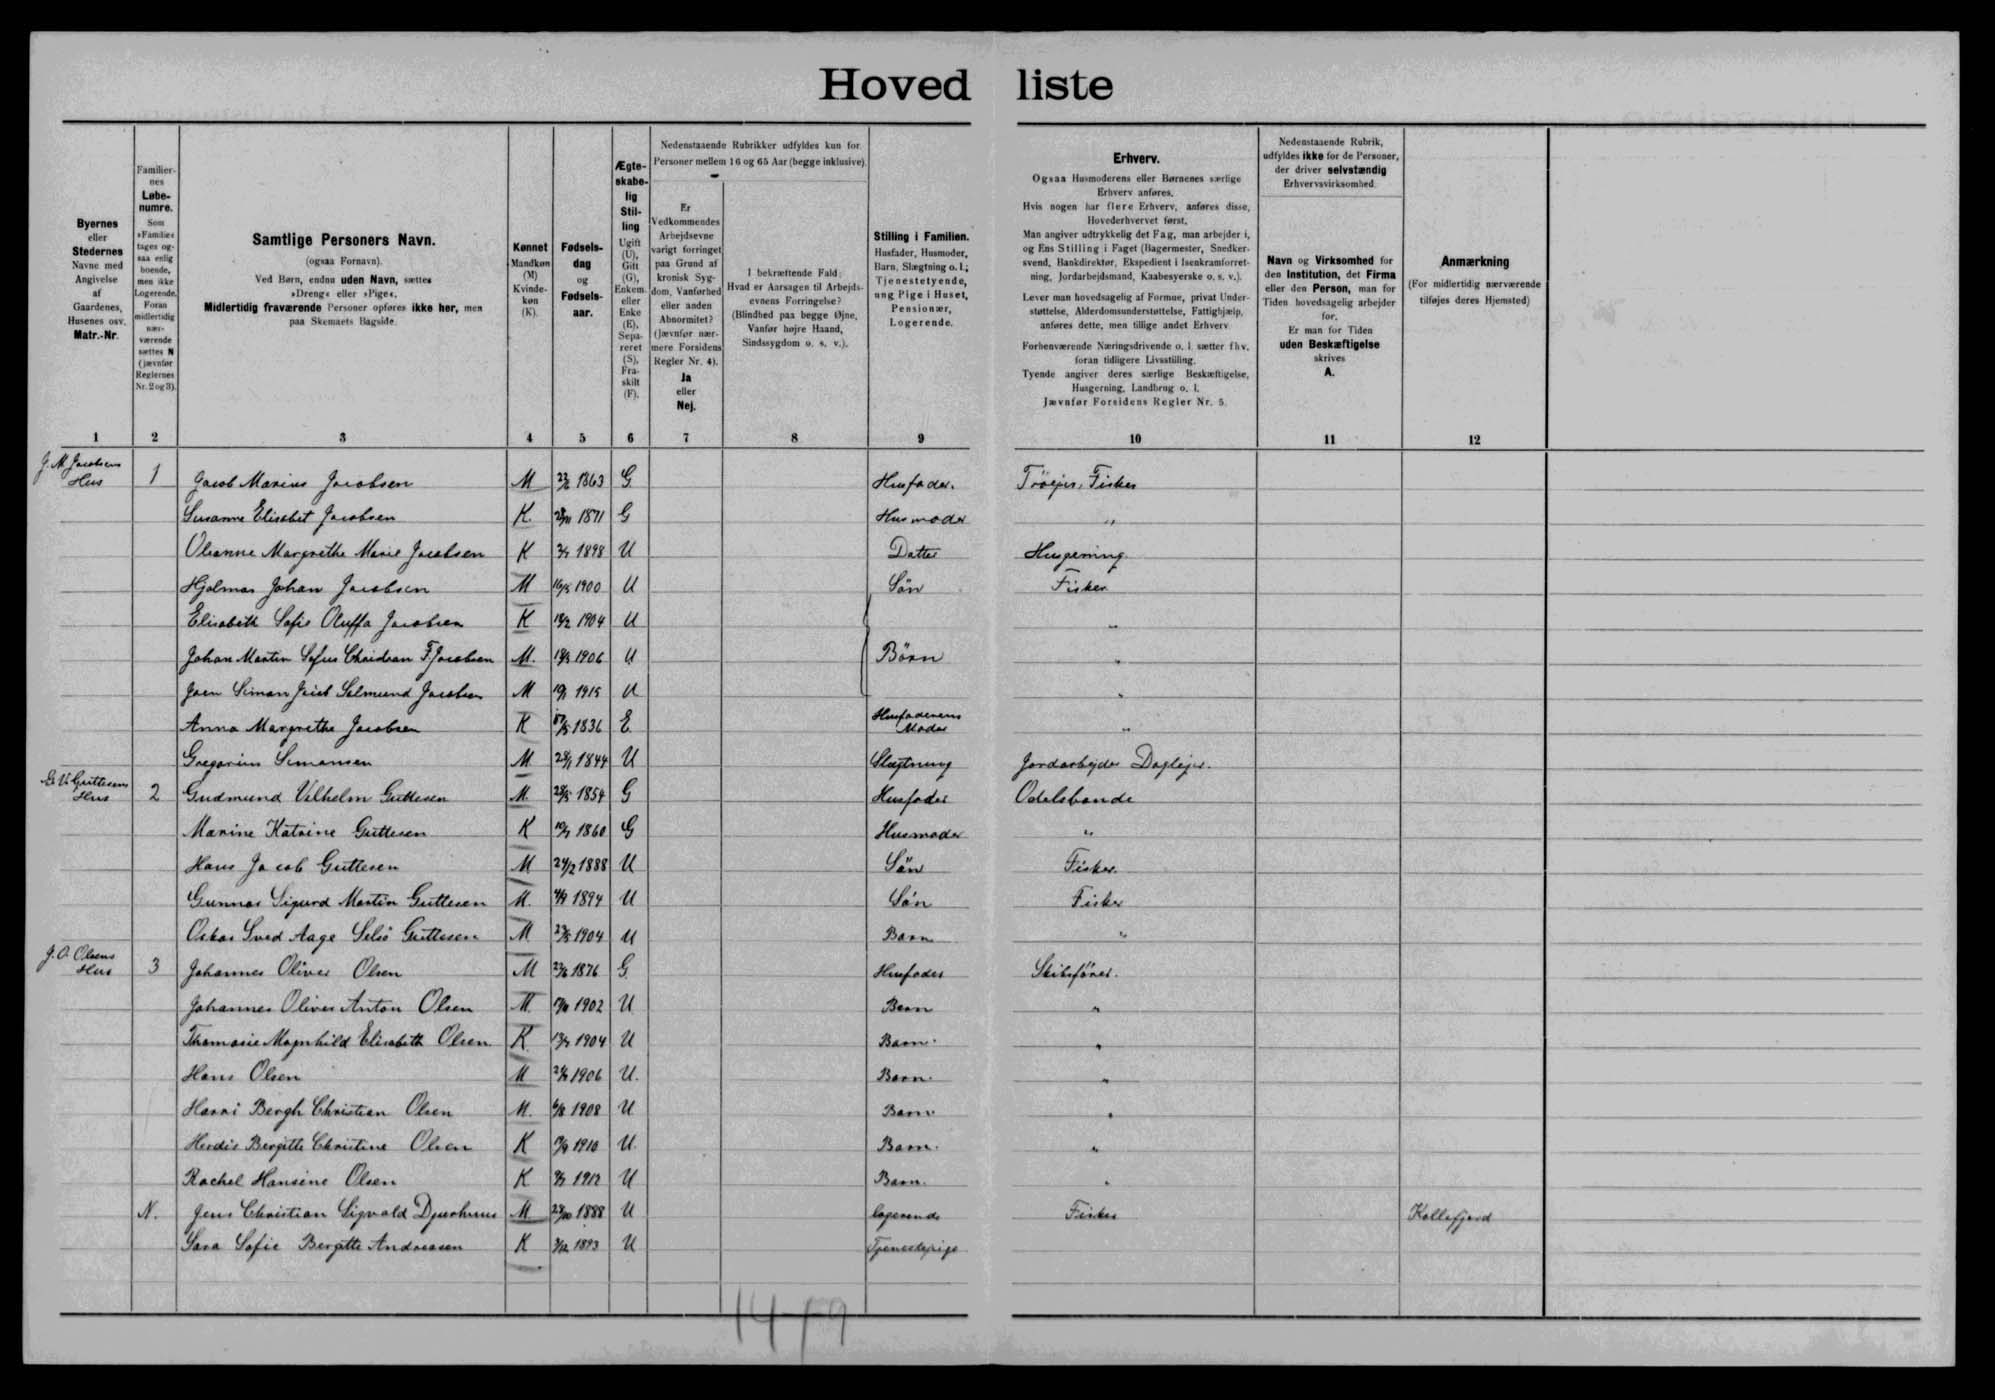 Hoved liste
Byernes
eller
Stedernes
Navne med
Angivelse
af
Gaardenes,
Husenes osv.
Matr.-Nr.
Familier-
nes
Løbe-
numre.
Som
»Familie«
tages og-
saa enlig
boende,
men ikke
Logerende.
Foran
midlertidig
nær-
værende
sættes N
(jævnfør
Reglernes
Nr. 2 og 3).
Samtlige Personers Navn.
(ogsaa Fornavn).
Ved Børn, endnu uden Navn, sættes
»Dreng« eller »Pige«.
Midlertidig fraværende Personer opføres ikke her, men
paa Skemaets Bagside.
Kønnet
Mandkøn
(M)
Kvinde-
køn
(K).
Fødsels-
dag
og
Fødsels-
aar.
Ægte-
skabe-
lig
Stil-
ling
Ugift
(U),
Gift
(G),
Enkem.
eller
Enke
(E),
Sepa-
reret
(S),
Fra-
skilt
(F).
Nedenstaaende Rubrikker udfyldes kun for
Personer mellem 16 og 65 Aar (begge inklusive).
Er
Vedkommendes
Arbejdsevne
varigt forringet
paa Grund af
kronisk Syg-
dom, Vanførhed
eller anden
Abnormitet?
(Jævnfør nær-
mere Forsidens
Regler Nr. 4).
Ja
eller
Nej.
I bekræftende Fald:
Hvad er Aarsagen til Arbejds-
evnens Forringelse?
(Blindhed paa begge Øjne,
Vanfør højre Haand,
Sindssygdom o. s. v.).
Stilling i Familien.
Husfader, Husmoder,
Barn, Slægtning o. l.;
Tjenestetyende,
ung Pige i Huset,
Pensionær,
Logerende.
Erhverv.
Ogsaa Husmoderens eller Børnenes særlige
Erhverv anføres.
Hvis nogen har flere Erhverv, anføres disse,
Hovederhvervet først.
Man angiver udtrykkelig det Fag, man arbejder i,
og Ens Stilling i Faget (Bagermester, Snedker-
svend, Bankdirektør, Ekspedient i Isenkramforret-
ning, Jordarbejdsmand, Kaabesyerske o. s. v.).
Lever man hovedsagelig af Formue, privat Under-
støttelse, Alderdomsunderstøttelse, Fattighjælp,
anføres dette, men tillige andet Erhverv.
Forhenværende Næringsdrivende o. l. sætter fhv.
foran tidligere Livsstilling.
Tyende angiver deres særlige Beskæftigelse,
Husgerning, Landbrug o. l.
Jævnfør Forsidens Regler Nr. 5.
Nedenstaaende Rubrik,
udfyldes ikke for de Personer,
der driver selvstændig
Erhvervsvirksomhed.
Navn og Virksomhed for
den Institution, det Firma
eller den Person, man for
Tiden hovedsagelig arbejder
for.
Er man for Tiden
uden Beskæftigelse
skrives
A.
Anmærkning
(For midlertidig nærværende
tilføjes deres Hjemsted)
1 2 3 4 5 6 7 8 9 10 11 12
J. M. Jacobsens
Hus 1 Jacob Marius Jacobsen M 1863 G Husfader. Fisker
Susanne Elisabet Jacobsen K. 1871 G Husmoder "
Olianne Margrethe Marie Jacobsen K 1898 U Datter Husgerning.
Hjalmar Johan Jacobsen M 16/5 1900 U Sön Fisker
Elisabeth Sofie Oluffa Jacobsen K 1904 U "
Johan Martin Sofus Christian F. Jacobsen M. 1906 U Börn "
Joen Simon Jacob Salmund Jacobsen M 1915 U "
Anna Margrethe Jacobsen K 1836 E. Husfaderens
Moder "
Gregorius Simonsen M 1844 U Slægtning Jordarbejder Daglejer.
G. V. Guttesens
Hus 2 Gudmund Vilhelm Guttesen M. 1854 G Husfader Odelsbonde
Marine Katrine Guttesen K 1860 G Husmoder "
Hans Jacob Guttesen M 24/2 1888 U Sön Fisker.
Gunnar Sigurd Martin Guttesen M. 1894 U Sön Fisker
Oskar Sved Aage Selsö Guttesen M 1904 U Barn "
J. O. Olsens
Hus 3 Johannes Oliver Olsen M 1876 G. Husfader Skibsförer.
Johannes Oliver Anton Olsen M. 1902 U Barn "
Thomasie Magnhild Elisabeth Olsen K 1904 U Barn. "
Hans Olsen M 1906 U. Barn. "
Harri Bergh Christian Olsen M. 1908 U Barn. "
Herdis Bergitte Christine Olsen K 1910 U. Barn. "
Rachel Hansine Olsen K 1912 U Barn. "
N. Jens Christian Sigvald Djurhuus M 1888 U logerende Fisker Kollefjord
Sara Sofie Bergitte Andreasen K 1893 U Tjenestepige
14 + 9